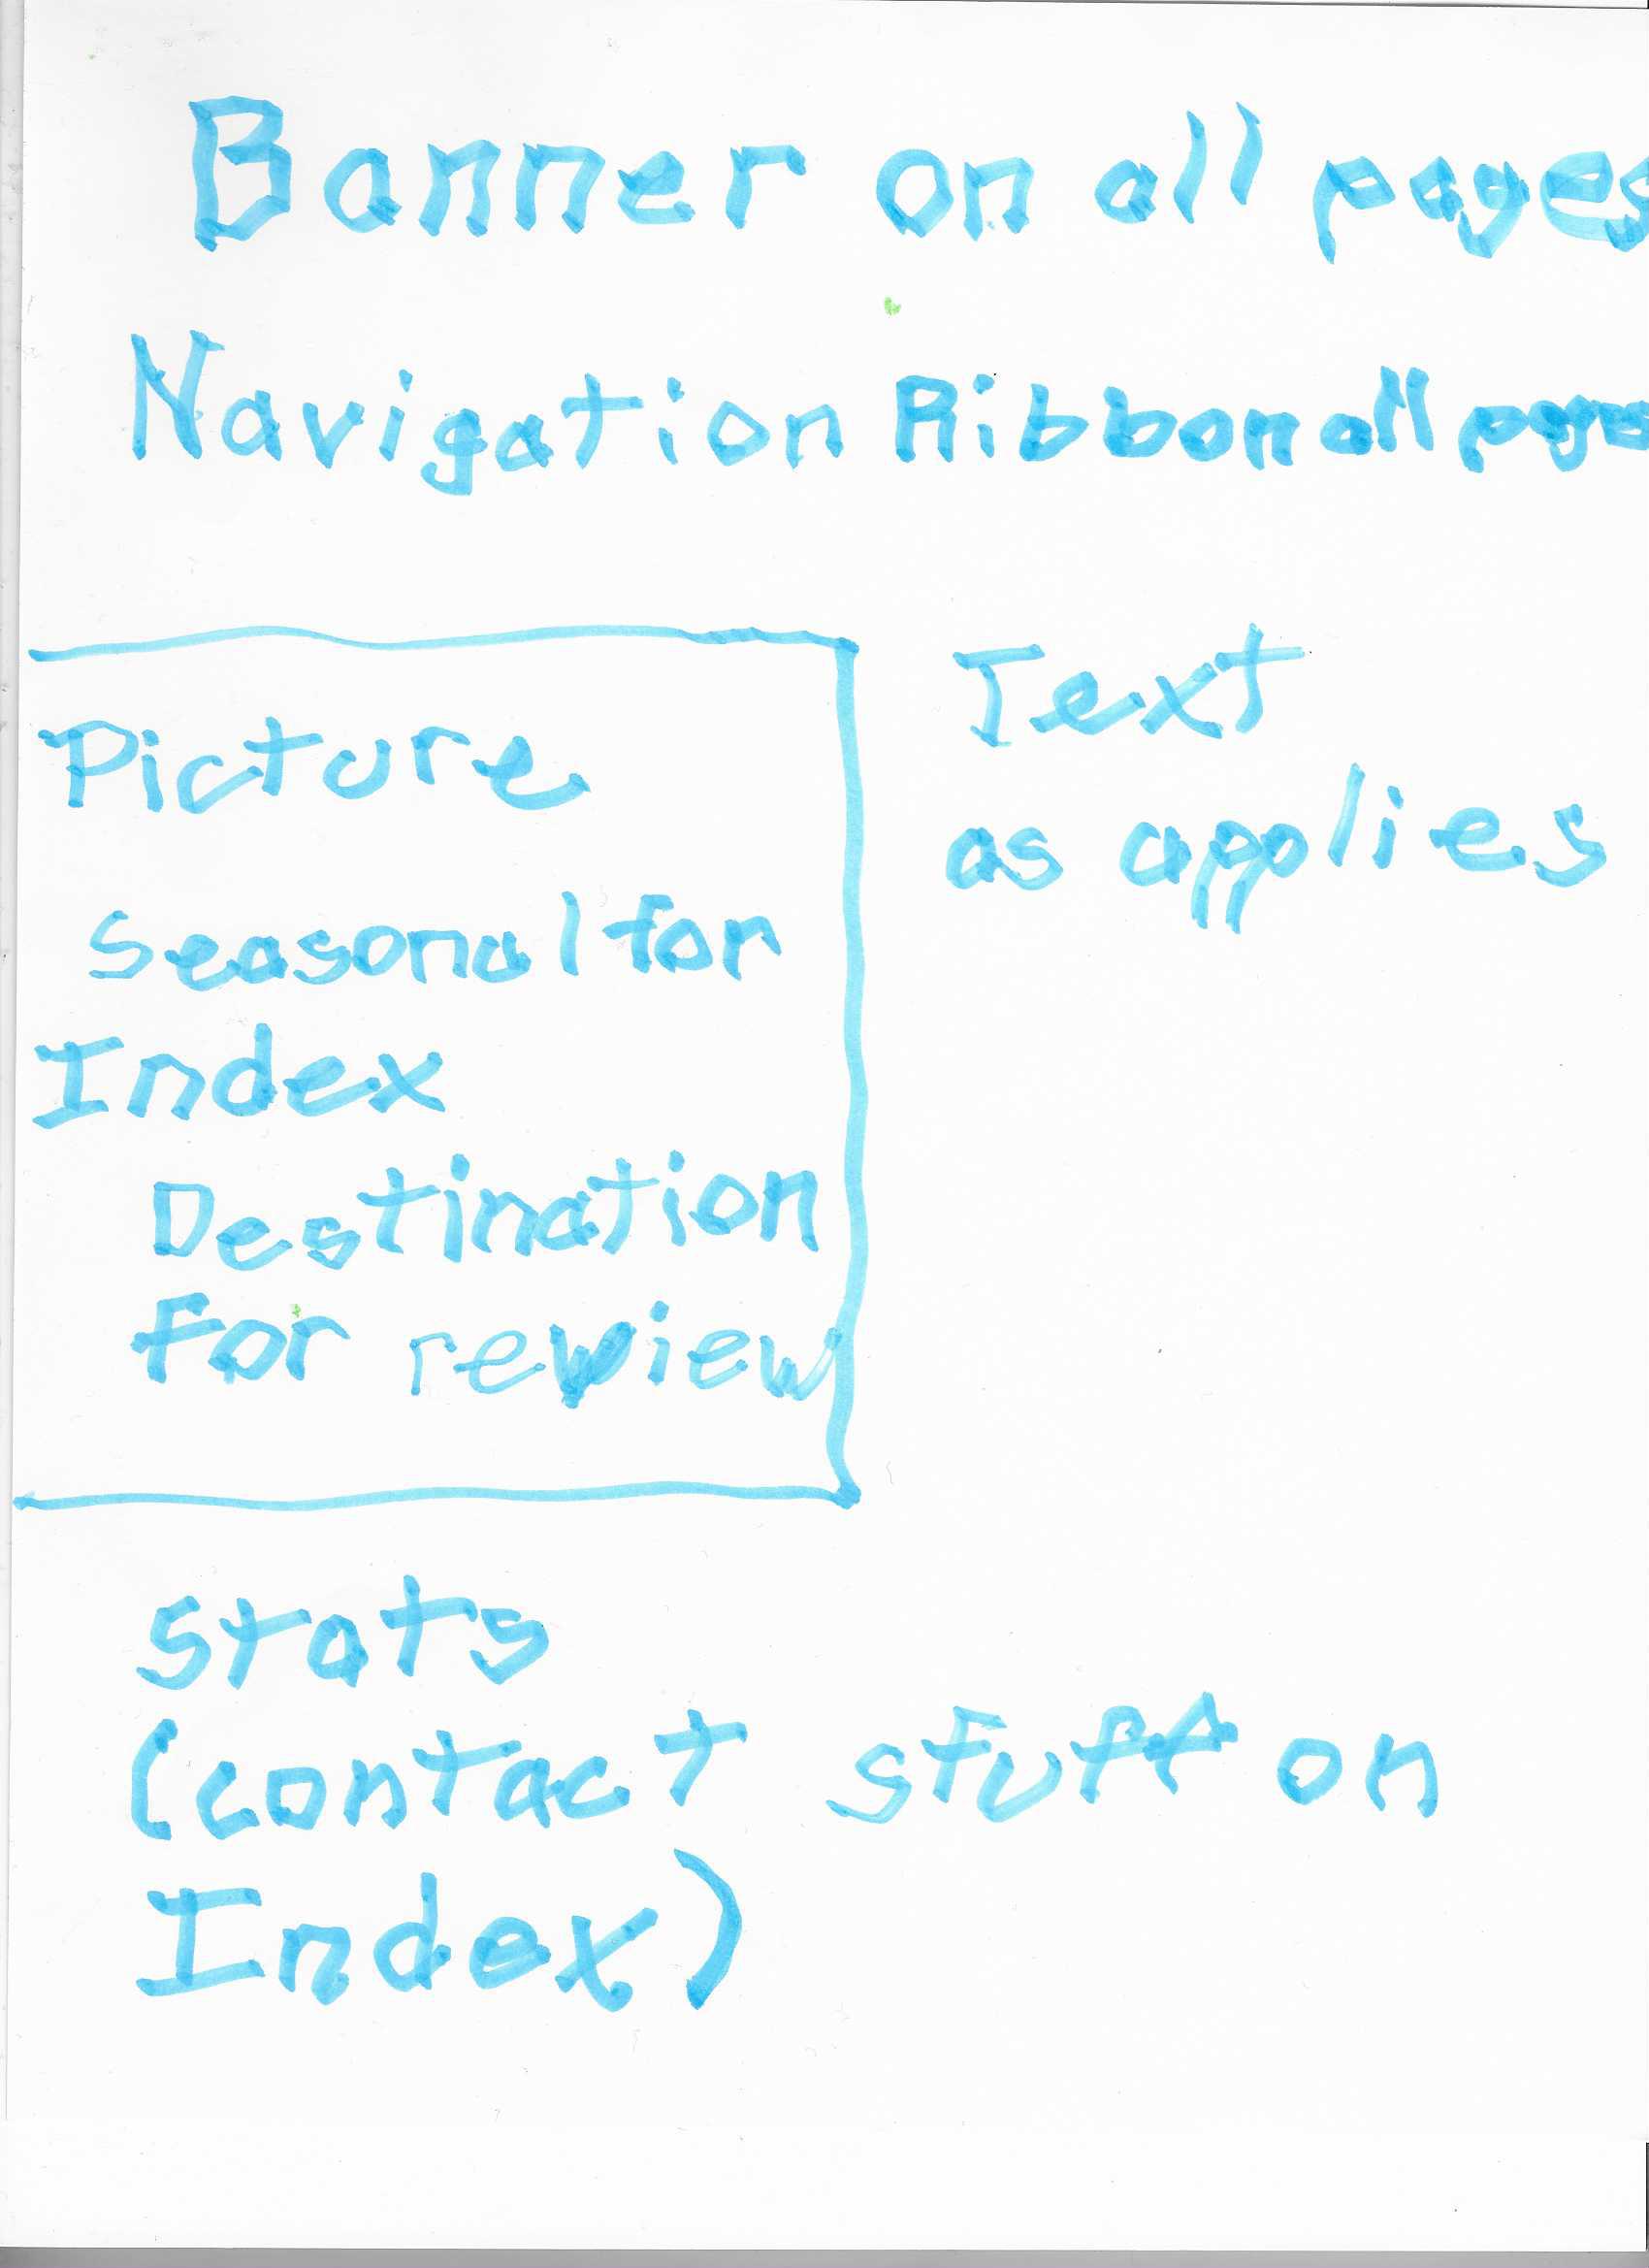 Banner on all pages
Navigation Ribbon all pages
Picture
Seasonal for
Index
Destination
for review
Text
as applies
Stats
(contact stuff on
Index)